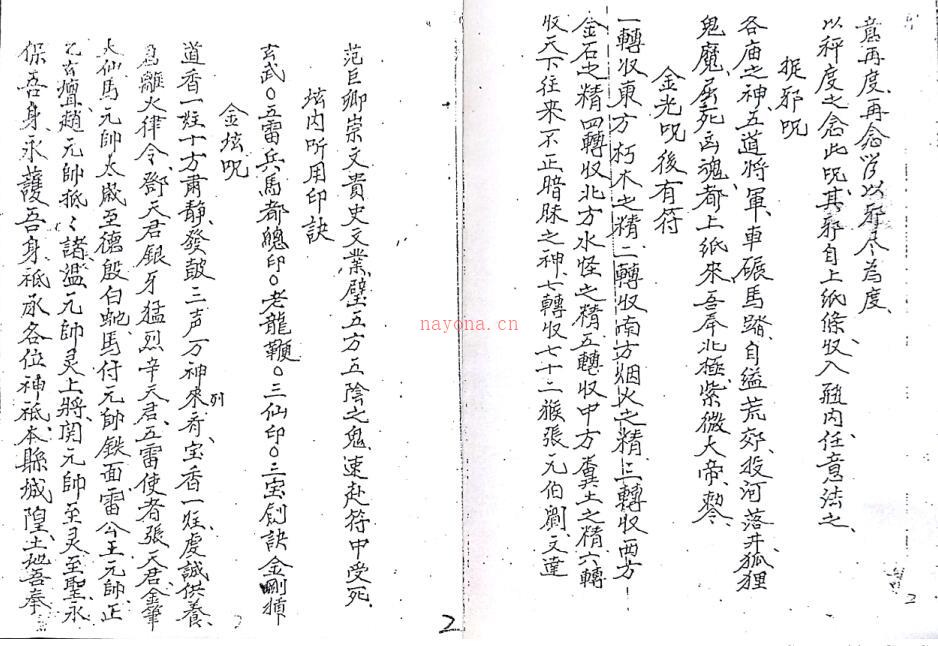 意再度再念咒以邪尽為度、
以秤度之念此咒其邪自上紙條收入瓶内任意法之、
捉邪咒
各庙之神、五道将軍、車碾馬踏、自缢荒郊、投河落井、狐狸
鬼魔、屈死凶魂、都上紙來、吾奉北極紫微大帝勅
金光咒後有符
一轉收東方朽木之精、二轉收南方烟火之精、三轉收西方
金石之精、四轉收北方水怪之精、五轉收中方糞土之精、六轉
收天下往来不正暗昧之神、七轉收七十二猴、張元伯劉文達
2
范巨卿崇文貴史文業、壁五方五陰之鬼、速赴符中受死、
坛内所用印訣
玄武〇五雷兵馬都總印〇老龍鞭〇三仙印〇三宝劍訣金剛插
金坛咒
道香一炷十方肃静、發鼓三声万神來列、宝香一炷虔誠供養、
為離火律令、鄧天君銀牙猛烈辛天君、五雷使者張天君、金筆
大仙馬元帥、太歲至德殷、白虵馬付元帥、鉄面雷公王元帥、正
乙玄壇趙元帥、抵〻諸瘟元帥、灵上將関元帥、至灵至聖、永
保吾身、永護吾身、祗承各位神祗、本縣城隍、土地、吾奉
2
nayona.cn